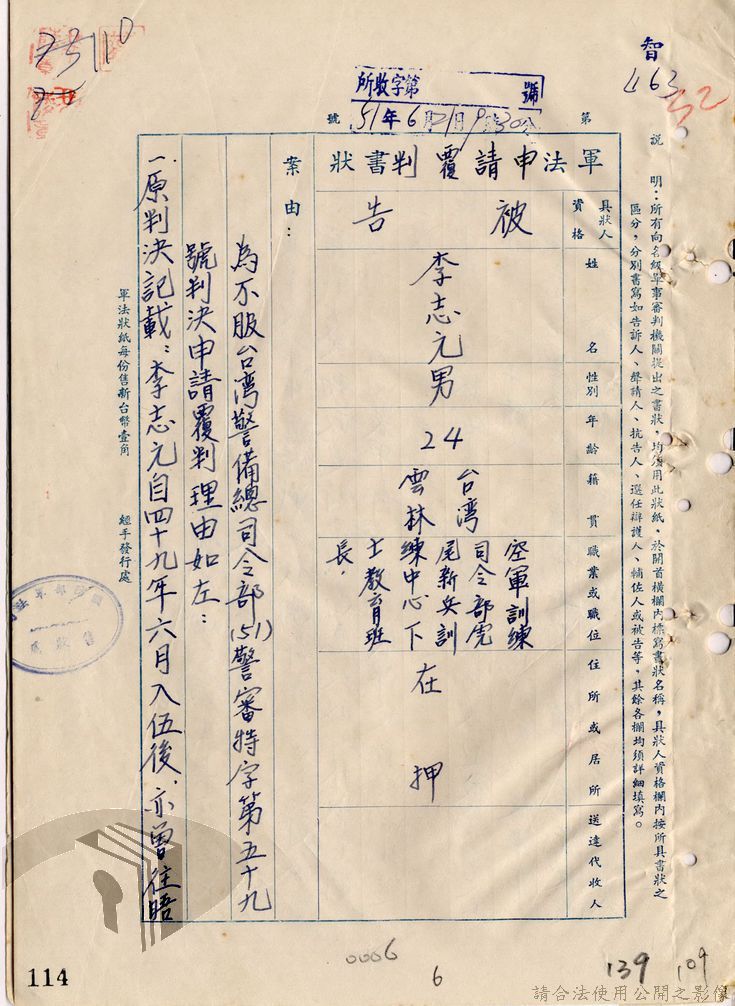 智
463
52
73110
所收字第 號
51年6月21日9時30分
第 號
說明：所有向各級軍事審判機關提出之書狀，均須用此狀紙，於開首橫欄內標寫書狀名稱，具狀人資格欄內按所具書狀之
區分，分別書寫如告訴人、聲請人、抗告人、選任辯護人、輔佐人或被告等，其餘各欄均須詳細填寫。
軍法申請覆判書狀
具狀人資格
被告
姓名
李志元
性別
男
年齡
24
籍貫
台湾
雲林
職業或職位
空軍訓練
司令部虎
尾新兵訓
練中心下
士教育班
長．
住所或居所
在押
送達代收人
案由：
為不服台湾警備總司令部(51)警審特字第五十九
號判決申請覆判理由如左：
一.原判決記載：李志元自四十九年六月入伍後，亦曾往晤
軍法狀紙每份售新台幣壹角
經手發行處
0006
6
139
109
114
請合法使用公開之影像